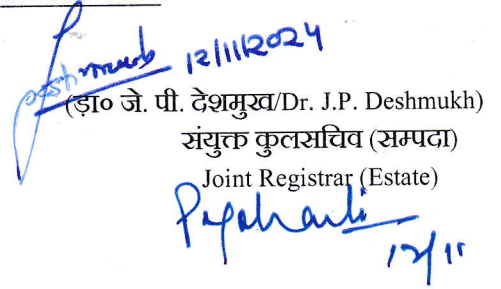 Deshmukh 12/11/2024
(ड़ा० जे. पी. देशमुख/Dr. J.P. Deshmukh)
संयुक्त कुलसचिव (सम्पदा)
Joint Registrar (Estate)
12/11